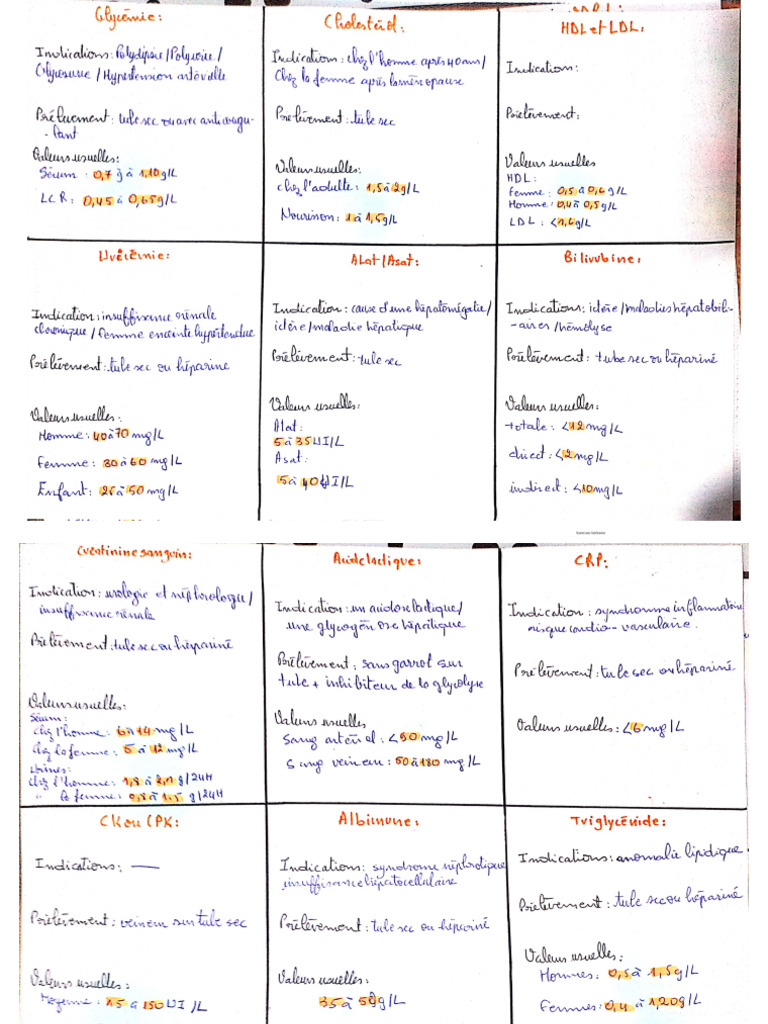 Glycémie:
Indications: Polydipsie/Polyurie/
Glycosurie/Hypertension artérielle
Prélèvement: tube sec ou avec anticoagu-
-lant
Valeurs usuelles:
Sérum: 0,7 à 1,10g/L
LCR: 0,45 à 0,65g/L
Cholestérol:
Indication: chez l'homme après 40ans/
Chez la femme après la ménopause
Prélèvement: tube sec
Valeurs usuelles:
chez l'adulte: 1,5à2g/L
Nourrisson: 1 à 1,5g/L
HDL et LDL:
Indication:
Prélèvement:
Valeurs usuelles
HDL:
femme: 0,5 à 0,6g/L
Homme: 0,4à 0,5g/L
LDL: <1,6g/L
Uricémie:
Indication: insuffisance rénale
chronique/femme enceinte hypertendue
Prélèvement: tube sec ou héparine
Valeurs usuelles:
Homme: 40à70 mg/L
femme: 30 à 60 mg/L
Enfant: 25 à 50 mg/L
Alat/Asat:
Indication: cause d'une hépatomégalie/
ictère/maladie hépatique
Prélèvement: tube sec
Valeurs usuelles:
Alat:
5 à 35UI/L
Asat:
5 à 40UI/L
Bilirubine:
Indications: ictère/maladies hépatobili-
-aires/hémolyse
Prélèvement: tube sec ou hépariné
Valeurs usuelles:
totale: <12mg/L
direct: <2mg/L
indirect: <10mg/L
Créatinine sanguin:
Indication: urologie et néphrologie/
insuffisance rénale
Prélèvement: tube sec ou hépariné
Valeurs usuelles:
Sérum:
chez l'homme: 6 à 14 mg/L
chez la femme: 5 à 12 mg/L
Urines:
Chez l'homme: 1,8 à 2,1 g/24H
" la femme: 0,8 à 1,5 g/24H
Acide lactique:
Indication: un acidose lactique/
une glycogénose hépatique
Prélèvement: sans garrot sur
tube + inhibiteur de la glycolyse
Valeurs usuelles
Sang artériel: <50 mg/L
Sang veineu: 50 à 180 mg/L
CRP:
Indication: syndromme inflammatoire
risque cardio-vasculaire.
Prélèvement: tube sec ou hépariné
Valeurs usuelles: <6 mg/L
CK ou CPK:
Indications: —
Prélèvement: veineux sur tube sec
Valeurs usuelles:
Moyenne: 15 à 150UI/L
Albimune:
Indication: syndrome néphrotique
insuffisance hépatocellulaire
Prélèvement: tube sec ou hépariné
Valeurs usuelles:
35 à 50g/L
Triglycéride:
Indications: anomalie lipidique
Prélèvement: tube sec ou hépariné
Valeurs usuelles:
Hommes: 0,5 à 1,5g/L
femmes: 0,4 à 1,20g/L